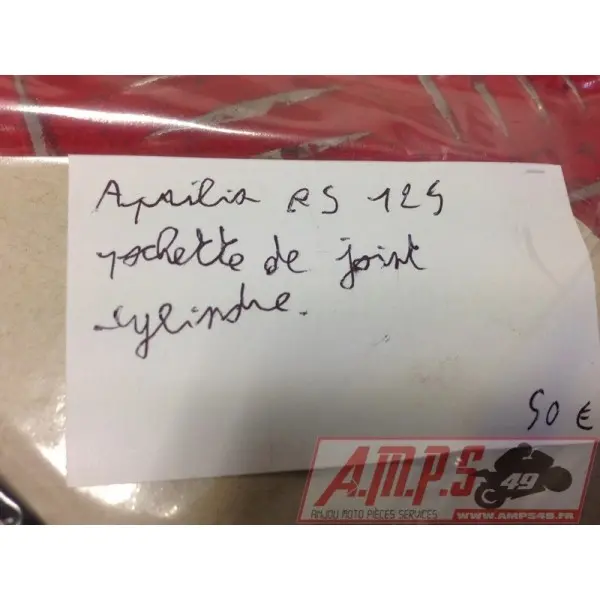 Aprilia RS 125
pochette de joint
cylindre.
50 €
A.M.P.S
49
ANJOU MOTO PIÈCES SERVICES
WWW.AMPS49.FR